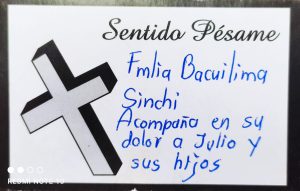 Sentido Pésame
Fmlia Bacuilima
Sinchi
Acompaña en su
dolor a Julio y
sus hijos
REDMI NOTE 10